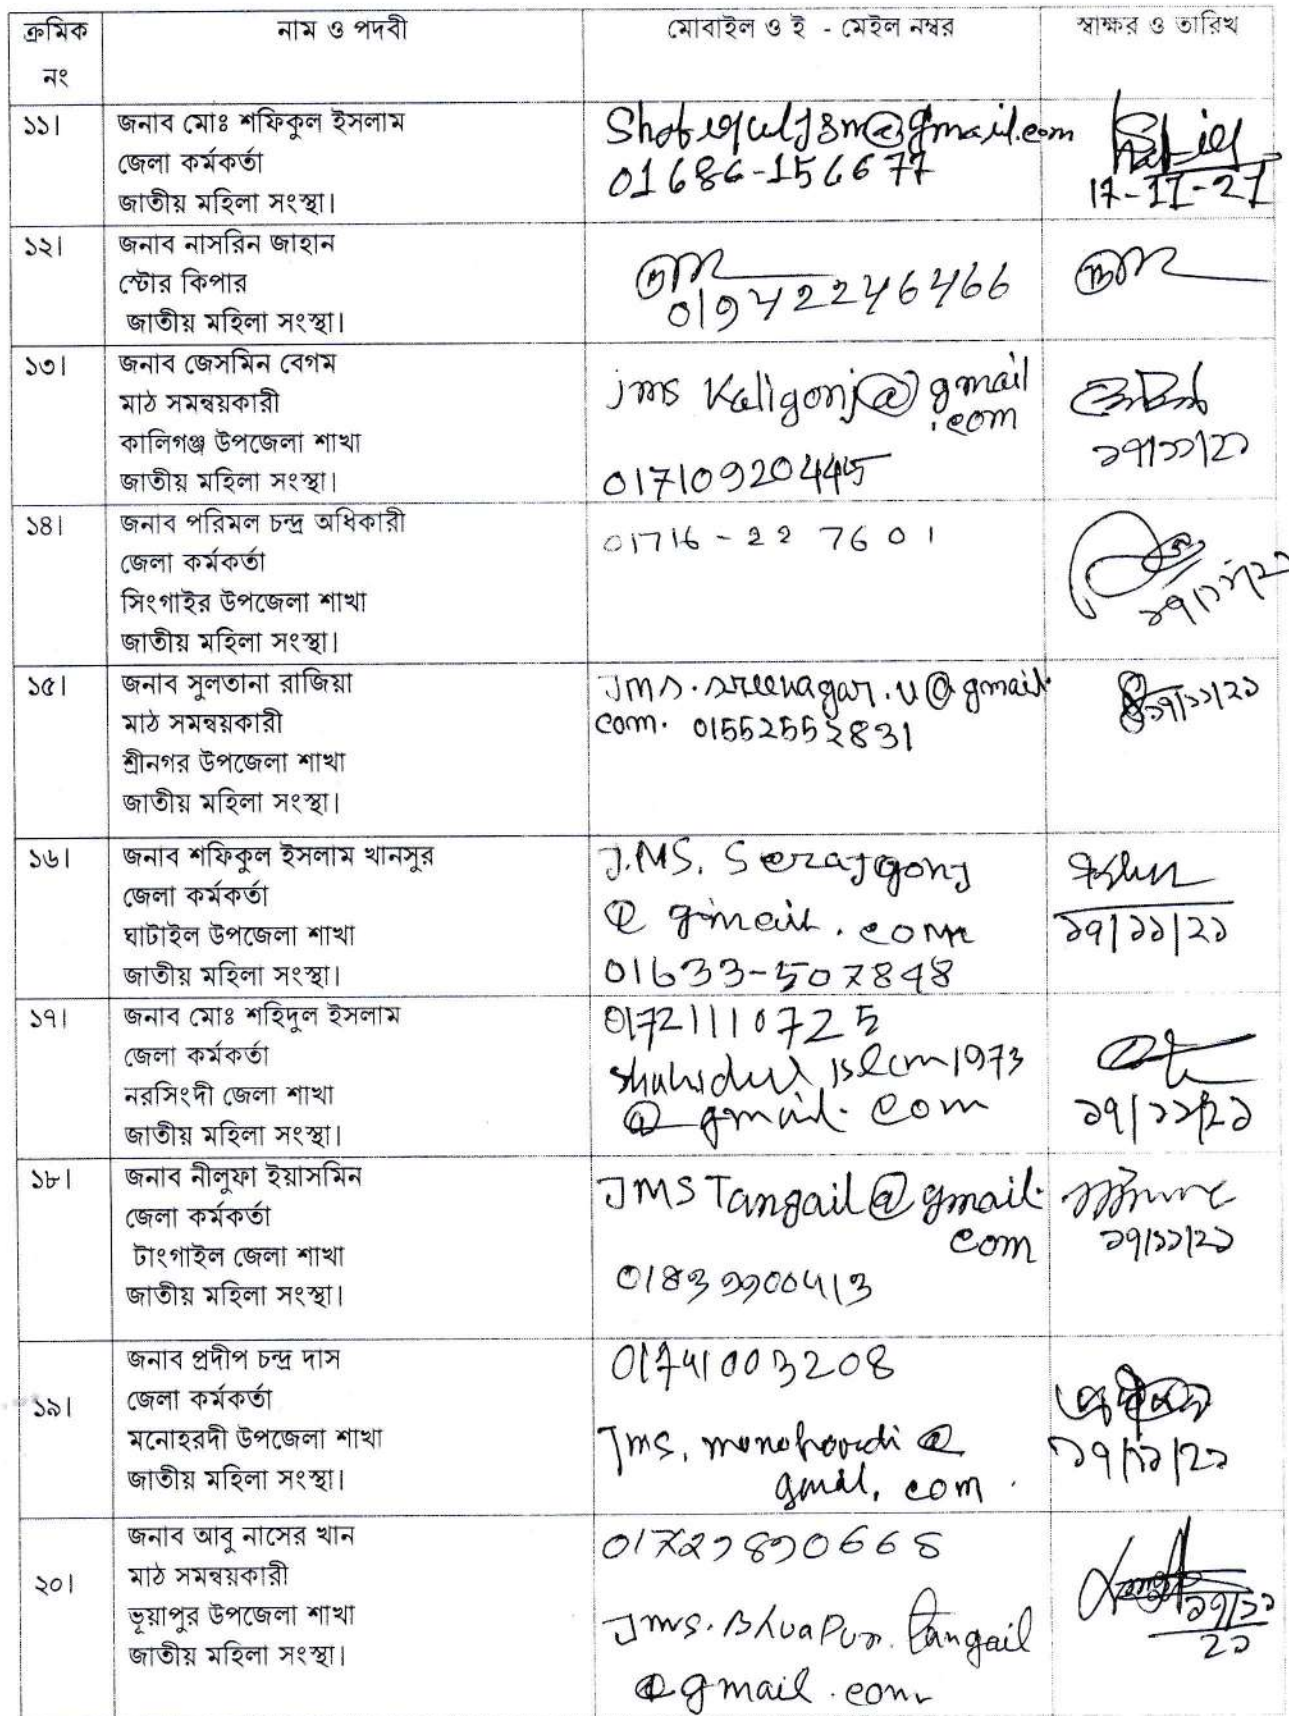 ক্রমিক নং
নাম ও পদবী
মোবাইল ও ই - মেইল নম্বর
স্বাক্ষর ও তারিখ
১১।
জনাব মোঃ শফিকুল ইসলাম
জেলা কর্মকর্তা
জাতীয় মহিলা সংস্থা।
01686-156677
17-11-21
১২।
জনাব নাসরিন জাহান
স্টোর কিপার
জাতীয় মহিলা সংস্থা।
১৩।
জনাব জেসমিন বেগম
মাঠ সমন্বয়কারী
কালিগঞ্জ উপজেলা শাখা
জাতীয় মহিলা সংস্থা।
jms Kaligonj@gmail
.com
01710920445
১৭/১১/২১
১৪।
জনাব পরিমল চন্দ্র অধিকারী
জেলা কর্মকর্তা
সিংগাইর উপজেলা শাখা
জাতীয় মহিলা সংস্থা।
01716-227601
১৭/১১/২১
১৫।
জনাব সুলতানা রাজিয়া
মাঠ সমন্বয়কারী
শ্রীনগর উপজেলা শাখা
জাতীয় মহিলা সংস্থা।
Jms.sreenagar.u@gmail.
com. 01552552831
১৭/১১/২১
১৬।
জনাব শফিকুল ইসলাম খানসুর
জেলা কর্মকর্তা
ঘাটাইল উপজেলা শাখা
জাতীয় মহিলা সংস্থা।
J.MS. Serajgonj
@ gmail.com
01633-507848
১৭/১১/২১
১৭।
জনাব মোঃ শহিদুল ইসলাম
জেলা কর্মকর্তা
নরসিংদী জেলা শাখা
জাতীয় মহিলা সংস্থা।
01721110725
shahidul islam1973
@gmail.com
১৭/১১/২১
১৮।
জনাব নীলুফা ইয়াসমিন
জেলা কর্মকর্তা
টাংগাইল জেলা শাখা
জাতীয় মহিলা সংস্থা।
JMS Tangail@gmail.
com
১৭/১১/২১
১৯।
জনাব প্রদীপ চন্দ্র দাস
জেলা কর্মকর্তা
মনোহরদী উপজেলা শাখা
জাতীয় মহিলা সংস্থা।
01741003208
Jms. monohordi @
gmail. com.
১৭/১১/২১
২০।
জনাব আবু নাসের খান
মাঠ সমন্বয়কারী
ভূয়াপুর উপজেলা শাখা
জাতীয় মহিলা সংস্থা।
Jms. Bhuapur. tangail
@gmail.com
১৭/১১
২১